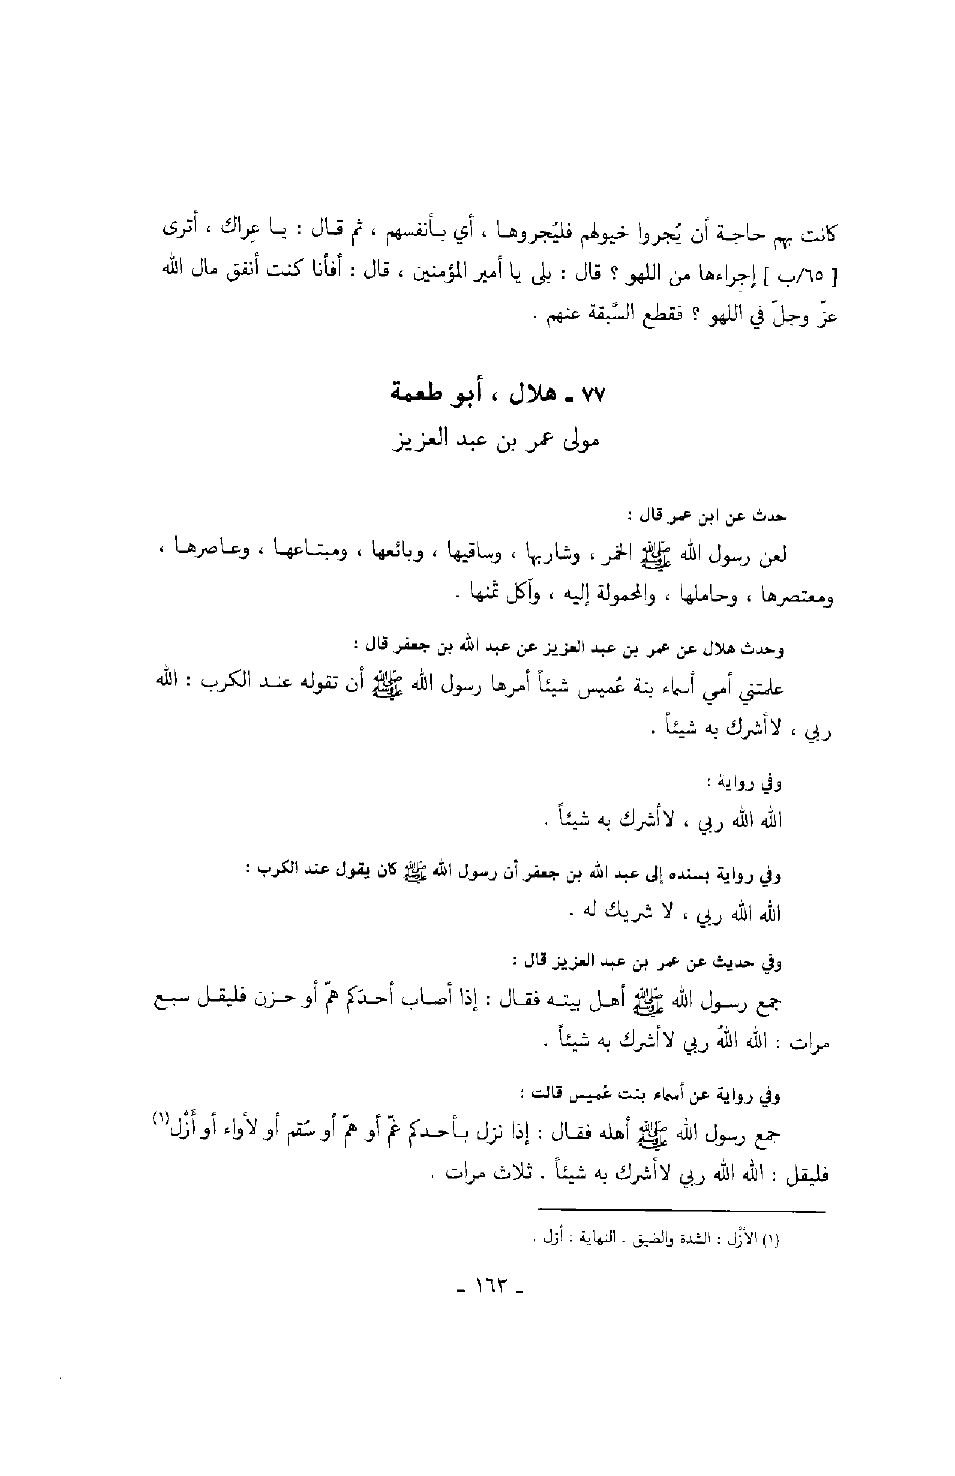 كانت بهم حاجة أن يُجروا خيولهم فليُجروها ، أي بأنفسهم ، ثم قال : يا عِراك ، أترى
[ ٦٥/ب ] إجراءها من اللهو ؟ قال : بلى يا أمير المؤمنين ، قال : أفأنا كنت أنفق مال الله
عزّ وجلّ في اللهو ؟ فقطع السُّبقة عنهم .
٧٧ ـ هلال ، أبو طعمة
مولى عمر بن عبد العزيز
حدث عن ابن عمر قال :
لعن رسول الله ﷺ الخمر ، وشاربها ، وساقيها ، وبائعها ، ومبتاعها ، وعاصرها ،
ومعتصرها ، وحاملها ، والمحمولة إليه ، وآكل ثمنها .
وحدث هلال عن عمر بن عبد العزيز عن عبد الله بن جعفر قال :
علمتني أمي أسماء بنة عُميس شيئاً أمرها رسول الله ﷺ أن تقوله عند الكرب : الله
ربي ، لا أشرك به شيئاً .
وفي رواية :
الله الله ربي ، لا أشرك به شيئاً .
وفي رواية بسنده إلى عبد الله بن جعفر أن رسول الله ﷺ كان يقول عند الكرب :
الله الله ربي ، لا شريك له .
وفي حديث عن عمر بن عبد العزيز قال :
جمع رسول الله ﷺ أهل بيته فقال : إذا أصاب أحدَكم همّ أو حزن فليقل سبع
مرات : الله اللهُ ربي لا أشرك به شيئاً .
وفي رواية عن أسماء بنت عُميس قالت :
جمع رسول الله ﷺ أهله فقال : إذا نزل بأحدكم غمّ أو همّ أو سُقم أو لأواء أو أَزْل(١)
فليقل : الله الله ربي لا أشرك به شيئاً . ثلاث مرات .
(١) الأَزْل : الشدة والضيق . النهاية : أزل .
ـ ١٦٣ ـ